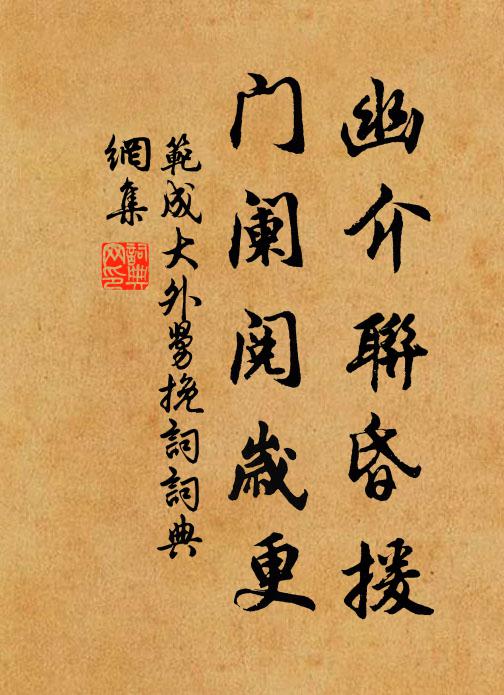 幽介聯昏援
门阑阅歲更
範成大外舅挽詞詞典
網集
詞典
网印